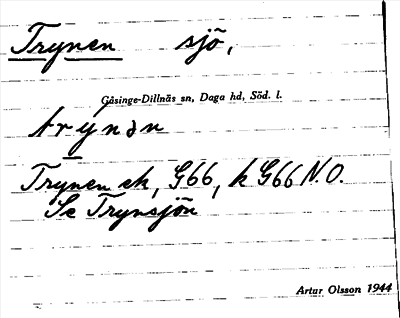 Trynen sjö,
Gåsinge-Dillnäs sn, Daga hd, Söd. l.
trynən
Trynen ek, G66, k G66 N.O.
Se Trynsjön
Artur Olsson 1944